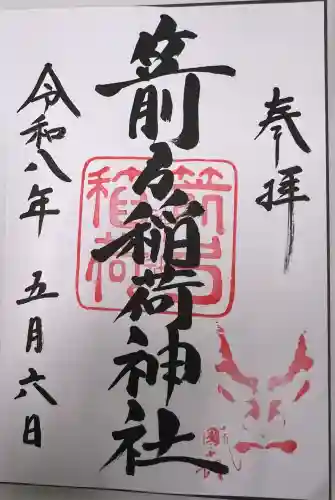 奉拝
箭弓稲荷神社
令和八年 五月六日